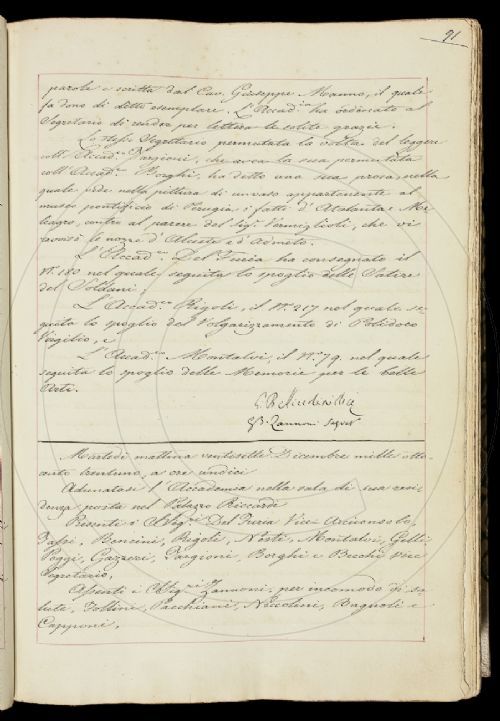 91
parole e scritta dal Cav. Giuseppe Manno, il quale
fa dono di detto esemplare. L'Accad.ia ha ordinato al
Segretario di render per lettera le solite grazie.
Lo stesso Segretario permutata la volta del leggere
coll'Accad.co Targioni, che avea la sua permutata
coll'Accad.co Borghi, ha detto una sua prosa, nella
quale vede nella pittura di un vaso appartenente al
museo pontificio di Perugia i fatti d'Atalanta e Me-
leagro, contro al parere del Sig.r Vermiglioli, che vi
ravvisò le nozze d'Alceste e d'Admeto.
L'Accad.co Del Furia ha consegnato il
N.o 180 nel quale seguita lo spoglio delle Satire
del Soldani;
L'Accad.co Rigoli, il N.o 217 nel quale se-
guita lo spoglio del Volgarizzamento di Polidoro
Virgilio, e
L'Accad.co Montalvi, il N.o 79. nel quale
seguita lo spoglio delle Memorie per le belle
Arti.
G. B. Zannoni Segret.
Martedì mattina ventisette Dicembre mille otto-
cento trentuno, a ore undici
Adunatasi l'Accademia nella sala di sua resi-
denza posta nel Palazzo Riccardi
Presenti i Sig.ri Del Furia Vice-Arciconsolo,
Sarsi, Bencini, Rigoli, Nesti, Montalvi, Gelli
Poggi, Gazzeri, Targioni, Borghi e Becchi Vice
Segretario,
Assenti i Sig.ri Zannoni, per incomodo di sa-
lute, Follini, Pacchiani, Niccolini, Bagnoli e
Capponi.